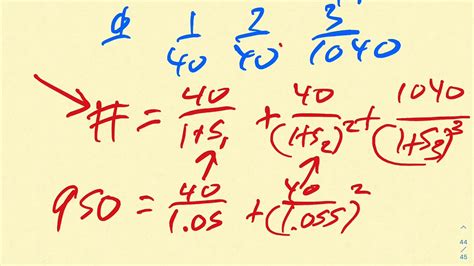 0 1 2 3
40 40 1040
# = 40/(1+S₁) + 40/(1+S₂)² + 1040/(1+S₃)³
950 = 40/1.05 + 40/(1.055)²
44 / 45